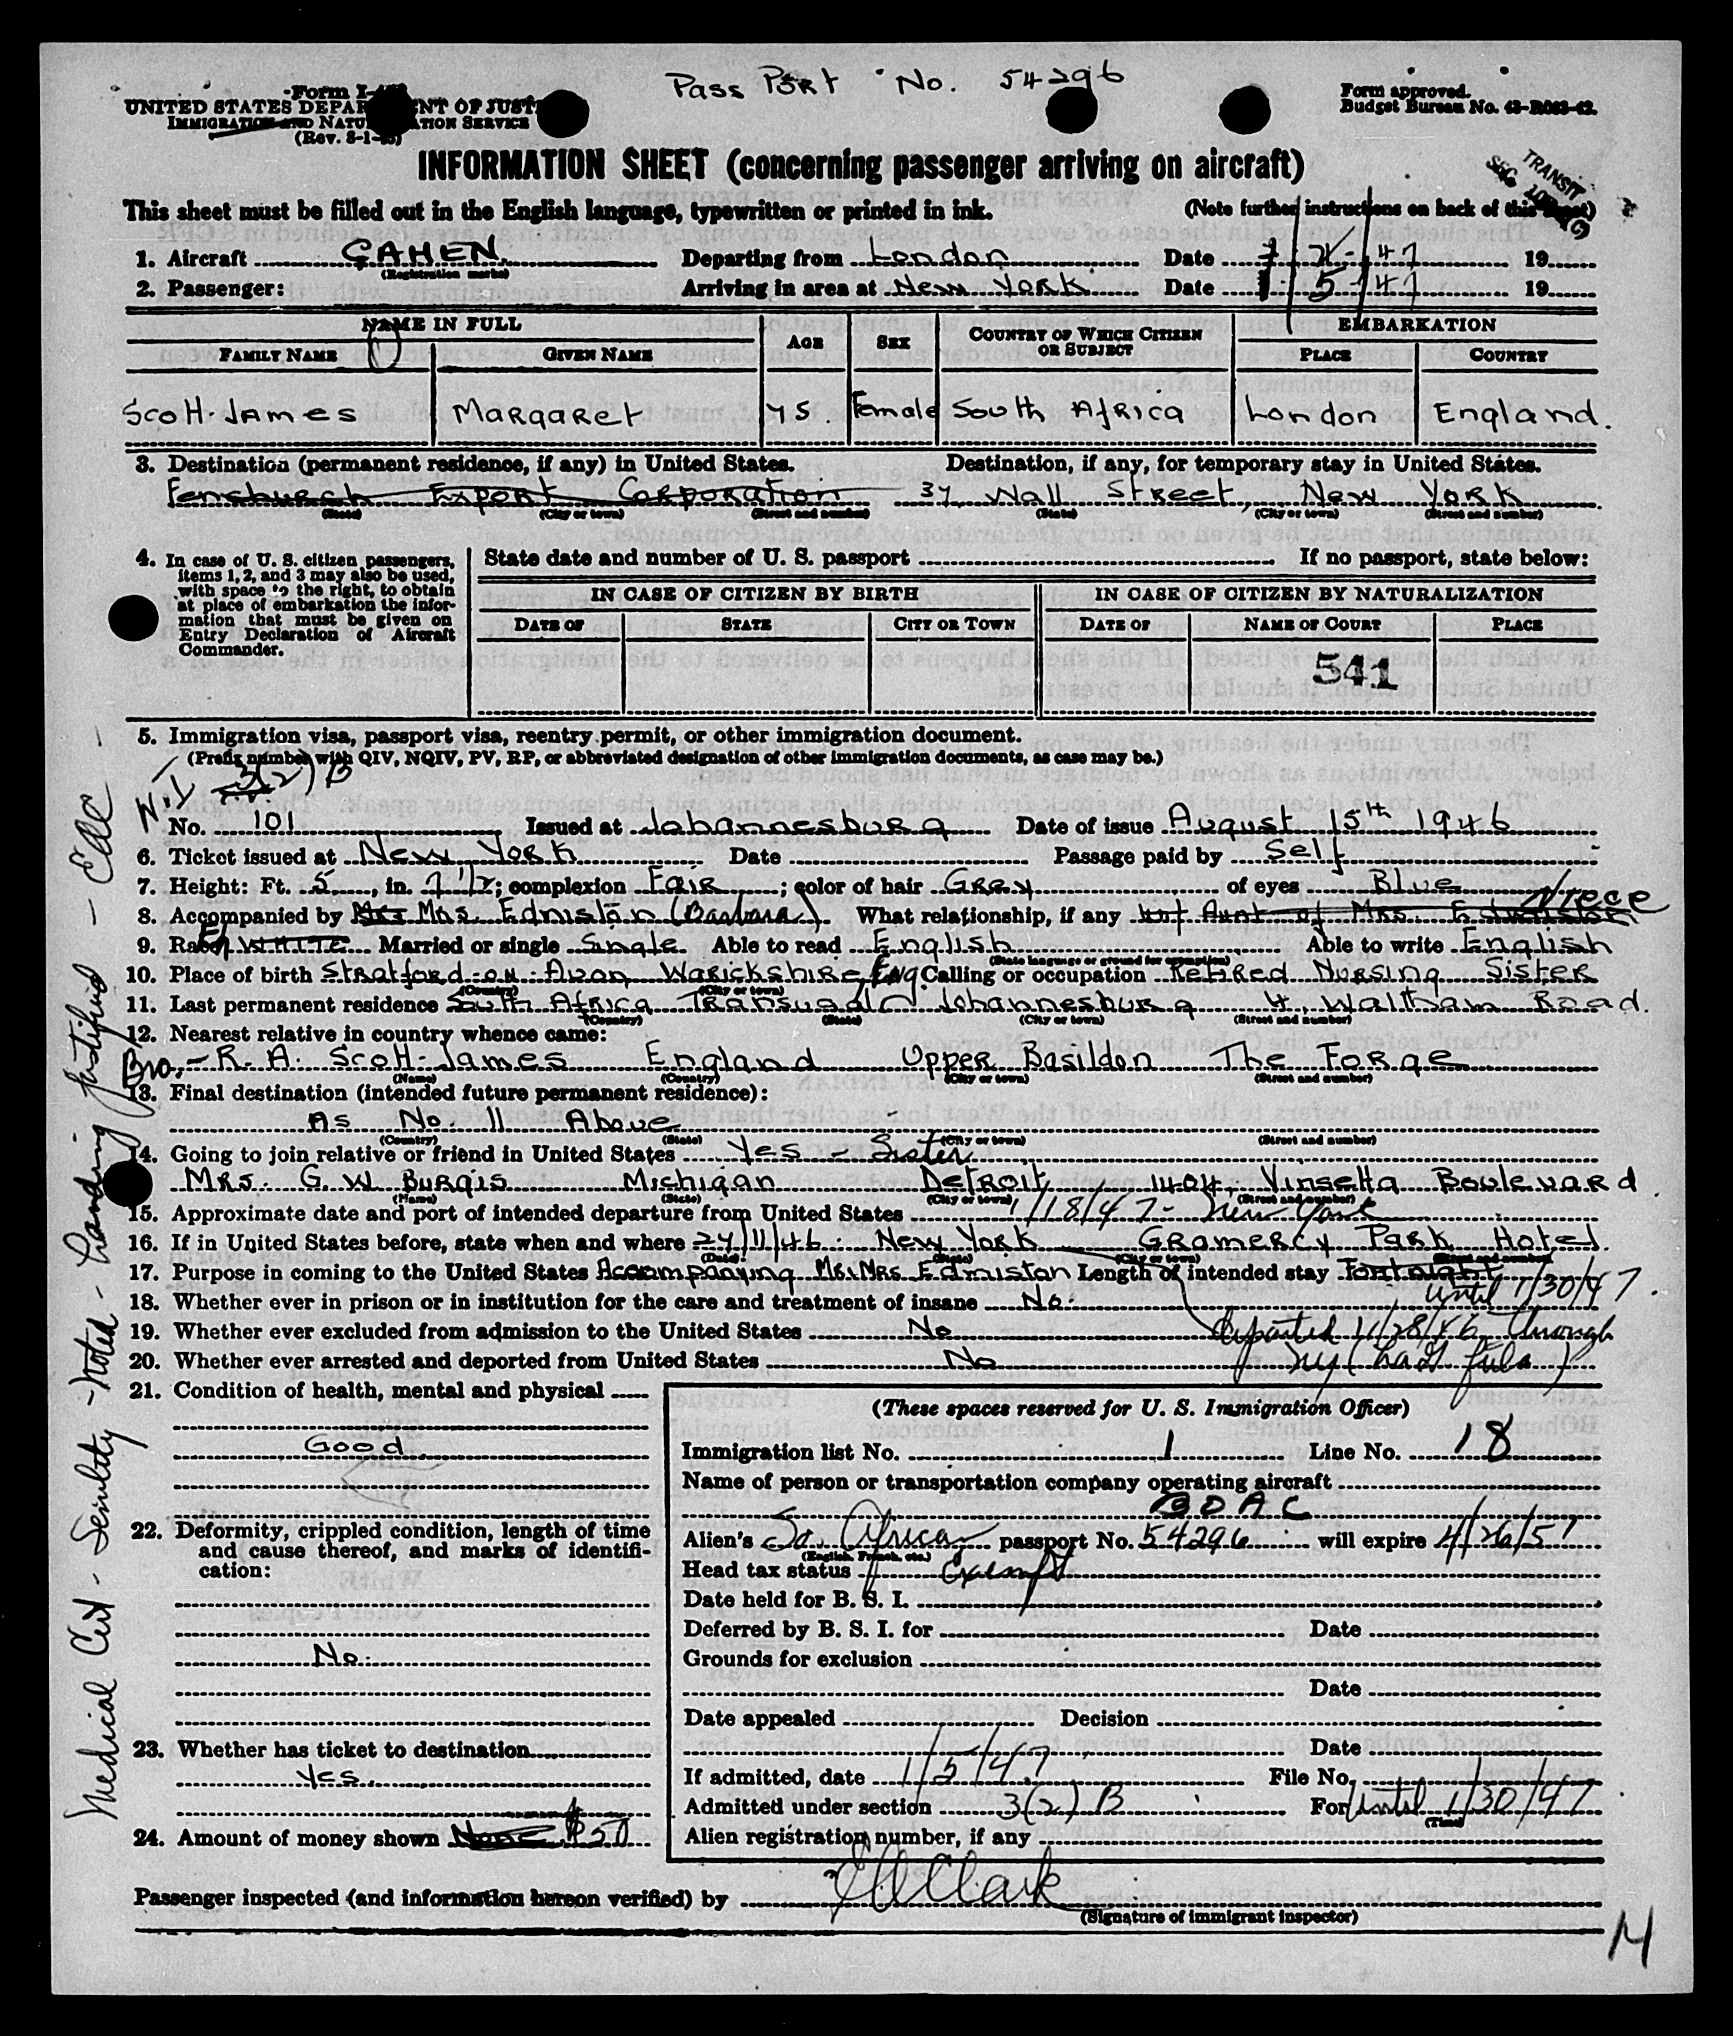 Pass Port No. 54296
Form I-
UNITED STATES DEPARTMENT OF JUSTICE
IMMIGRATION AND NATURALIZATION SERVICE
(Rev. 8-1-)
Form approved.
Budget Bureau No. 43-R083-42.
INFORMATION SHEET (concerning passenger arriving on aircraft)
TRANSIT
SEC
This sheet must be filled out in the English language, typewritten or printed in ink. (Note further instructions on back of this sheet)
1. Aircraft GAHEN. Departing from London Date 47 19
(Registration marks)
2. Passenger: Arriving in area at New York Date 1/5/47 19
NAME IN FULL AGE SEX COUNTRY OF WHICH CITIZEN OR SUBJECT EMBARKATION
FAMILY NAME GIVEN NAME PLACE COUNTRY
Scott-James Margaret 75. Female South Africa London England.
3. Destination (permanent residence, if any) in United States. Destination, if any, for temporary stay in United States.
Fenchurch Export Corporation 37 Wall Street, New York
(State) (City or town) (Street and number) (State) (City or town) (Street and number)
4. In case of U. S. citizen passengers, items 1, 2, and 3 may also be used, with space to the right, to obtain at place of embarkation the information that must be given on Entry Declaration of Aircraft Commander.
State date and number of U. S. passport If no passport, state below:
IN CASE OF CITIZEN BY BIRTH IN CASE OF CITIZEN BY NATURALIZATION
DATE OF STATE CITY OR TOWN DATE OF NAME OF COURT PLACE
541
5. Immigration visa, passport visa, reentry permit, or other immigration document.
(Prefix number with QIV, NQIV, PV, RP, or abbreviated designation of other immigration documents, as case may be.)
3(2)B
No. 101 Issued at Johannesburg Date of issue August 15th 1946
6. Ticket issued at New York Date Passage paid by Self
7. Height: Ft. 5, in. 7 1/2; complexion Fair; color of hair Grey of eyes Blue
8. Accompanied by Mrs. Edmiston (Barbara). What relationship, if any Aunt of Mrs. Edmiston Niece
9. Race White Married or single Single Able to read English Able to write English
(State language or ground for exemption)
10. Place of birth Stratford-on-Avon Warickshire, Eng. Calling or occupation Retired Nursing Sister
(Country) (City or town)
11. Last permanent residence South Africa Transvaal Johannesburg 4, Waltham Road.
(Country) (State) (City or town) (Street and number)
12. Nearest relative in country whence came:
Bro. - R. A. Scott-James England Upper Basildon The Forge
(Name) (Country) (City or town) (Street and number)
13. Final destination (intended future permanent residence):
As No. 11 Above
(Country) (State) (City or town) (Street and number)
14. Going to join relative or friend in United States Yes - Sister
Mrs. G. W Burgis Michigan Detroit, 1404, Vinsetta Boulevard.
(Name) (State) (City or town) (Street and number)
15. Approximate date and port of intended departure from United States 1/18/47 - New York
16. If in United States before, state when and where 27/11/46. New York Gramercy Park Hotel.
(Date) (City or town) (Street and number)
17. Purpose in coming to the United States Accompanying Mrs. Edmiston Length of intended stay Fortnight until 1/30/47.
18. Whether ever in prison or in institution for the care and treatment of insane No.
19. Whether ever excluded from admission to the United States No departed 11/28/46 through
20. Whether ever arrested and deported from United States No NY
21. Condition of health, mental and physical
Good
22. Deformity, crippled condition, length of time and cause thereof, and marks of identification:
No.
23. Whether has ticket to destination
Yes.
24. Amount of money shown None $50
(These spaces reserved for U. S. Immigration Officer)
Immigration list No. 1 Line No. 18
Name of person or transportation company operating aircraft
BOAC
Alien's So. Africa passport No. 54296 will expire 4/26/51
(English, French, etc.)
Head tax status Exempt
Date held for B. S. I.
Deferred by B. S. I. for Date
Grounds for exclusion
Date
Date appealed Decision
Date
If admitted, date 1/5/47 File No.
Admitted under section 3(2)B For Until 1/30/47
(Time)
Alien registration number, if any
Passenger inspected (and information hereon verified) by Clark
(Signature of immigrant inspector)
M
Medical Cert - Senility - noted - Landing justified -